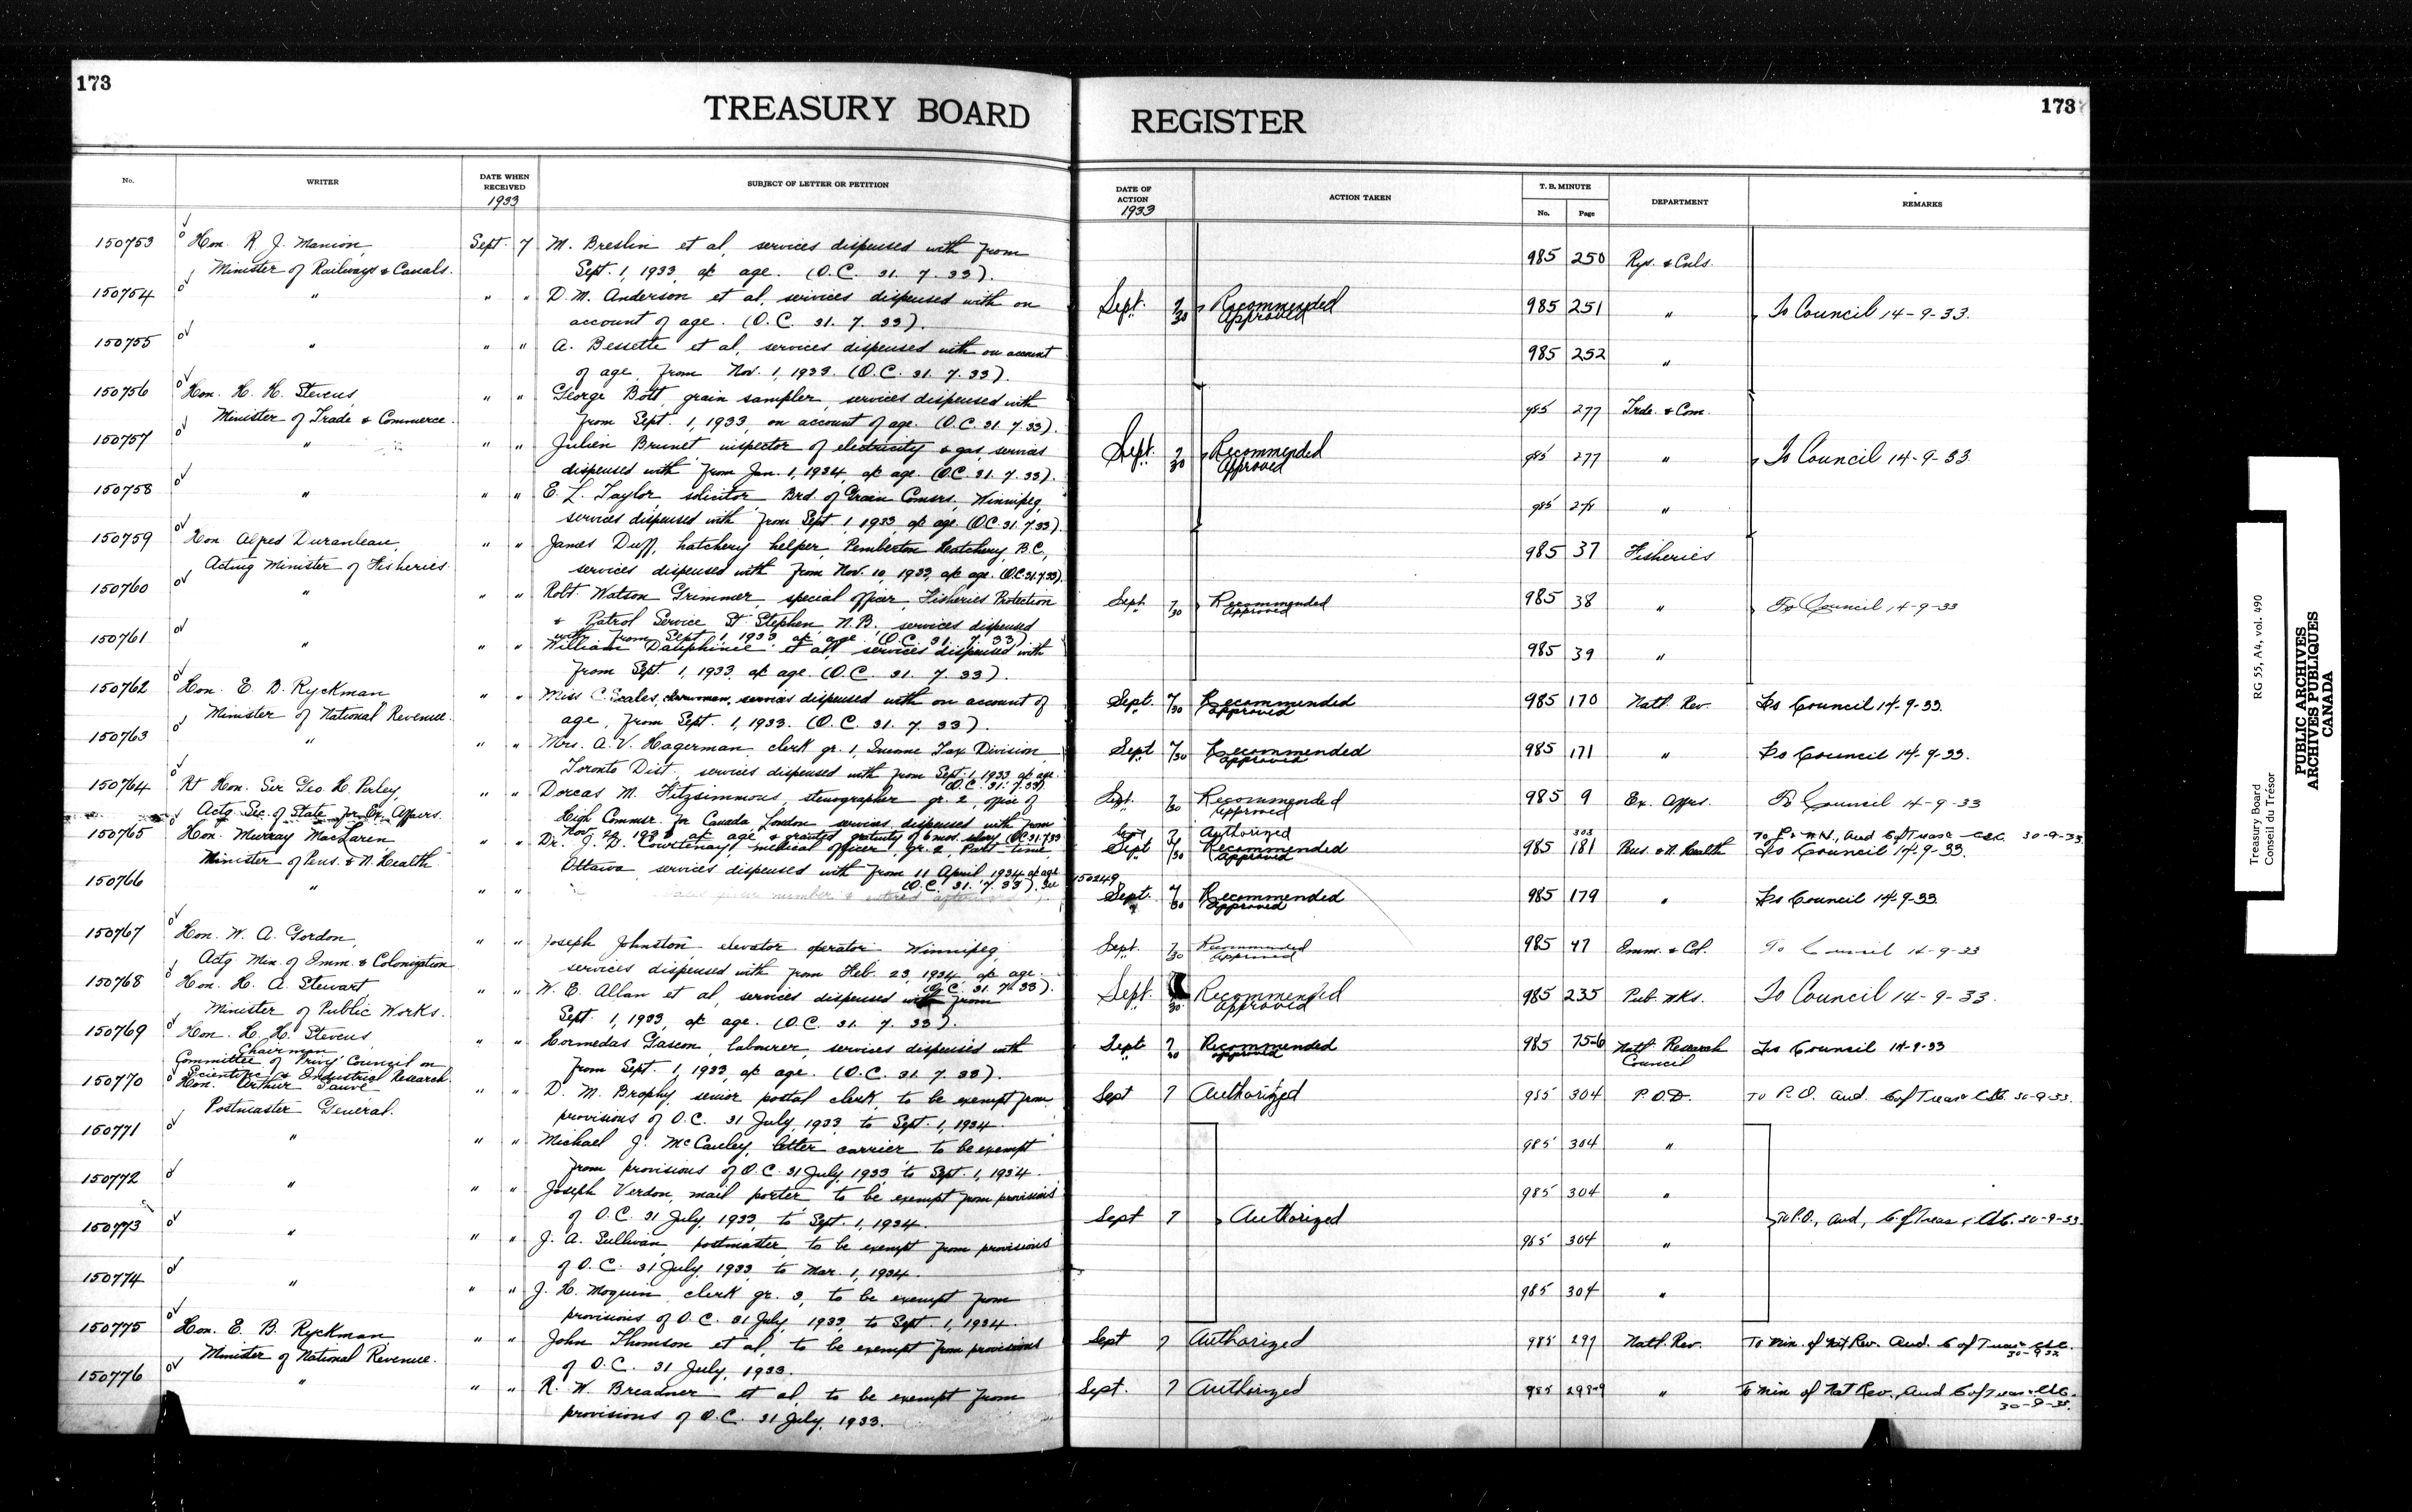 173
TREASURY BOARD REGISTER
173
No.
WRITER
DATE WHEN RECEIVED
1933
SUBJECT OF LETTER OR PETITION
DATE OF ACTION
1933
ACTION TAKEN
T. B. MINUTE
No. Page
DEPARTMENT
REMARKS
150753 Hon. R. J. Manion, Sept. 7 M. Breslin et al, services dispensed with from 985 250 Rys. & Cnls.
Minister of Railways & Canals. Sept. 1, 1933, a/c age. (O.C. 31. 7. 33).
150754 " " " D. M. Anderson et al, services dispensed with on Sept. 7 Recommended 985 251 " To Council 14-9-33.
account of age. (O.C. 31. 7. 33). " 30 Approved
150755 " " " A. Bessette et al, services dispensed with on account 985 252 "
of age, from Nov. 1, 1933. (O.C. 31. 7. 33).
150756 Hon. H. H. Stevens, " " George Bott, grain sampler, services dispensed with 985 277 Trde. & Com.
Minister of Trade & Commerce. from Sept. 1, 1933, on account of age. (O.C. 31. 7. 33).
150757 " " " Julien Brunet, inspector of electricity & gas, services Sept. 7 Recommended 985 277 " To Council 14-9-33.
dispensed with from Jan. 1, 1934, a/c age. (O.C. 31. 7. 33). " 30 Approved
150758 " " " E. L. Taylor, solicitor, Brd. of Grain Comsrs., Winnipeg, 985 "
services dispensed with from Sept. 1, 1933, a/c age. (O.C. 31. 7. 33).
150759 Hon. Alfred Duranleau, " " James Duff, hatchery helper, Pemberton Hatchery, B.C., 985 37 Fisheries
Acting Minister of Fisheries. services dispensed with from Nov. 10, 1933, a/c age. (O.C. 31. 7. 33).
150760 " " " Robt. Watson Grimmer, special officer, Fisheries Protection Sept. 7 Recommended 985 38 " To Council 14-9-33
& Patrol Service, St. Stephen N.B. services dispensed " 30 Approved
with from Sept. 1, 1933, a/c age. (O.C. 31. 7. 33).
150761 " " " William Dauphinee et al, services dispensed with 985 39 "
from Sept. 1, 1933, a/c age. (O.C. 31. 7. 33).
150762 Hon. E. B. Ryckman " " Miss C. Scales, charwoman, services dispensed with on account of Sept. 7 Recommended 985 170 Natl. Rev. To Council 14-9-33.
Minister of National Revenue. age, from Sept. 1, 1933. (O.C. 31. 7. 33). 30 Approved
150763 " " " Mrs. A. V. Hagerman, clerk gr. 1, Income Tax Division, Sept. 7 Recommended 985 171 " To Council 14-9-33.
Toronto Dist., services dispensed with from Sept. 1, 1933, a/c age. 30 Approved
(O.C. 31. 7. 33).
150764 Rt. Hon. Sir Geo. H. Perley, " " Dorcas M. Fitzsimmons, stenographer gr. 2, office of Sept. 7 Recommended 985 9 Ex. Affrs. To Council 14-9-33
Actg. Sec. of State for Ex. Affairs. High Commsr. for Canada, London, services dispensed with from 30 Approved
Nov. 1933, a/c age & granted gratuity of 6 mos. salary (O.C. 31. 7. 33)
Sept 7 Authorized 303 To P. & N.H., Aud. C. of Treas. CSC. 30-9-33.
150765 Hon. Murray MacLaren, Dr. J. D. Courtenay, medical officer, gr. 2, Part time, Sept 7 Recommended 985 181 Pens. & N. Health To Council 14-9-33.
Minister of Pens. & N. Health. Ottawa, services dispensed with from 11 April 1934, a/c age 30 Approved
(O.C. 31. 7. 33). See 150249
150766 " " " number & entered Sept. 7 Recommended 985 179 " To Council 14-9-33.
30 Approved
150767 Hon. W. A. Gordon, " " Joseph Johnston, elevator operator, Winnipeg, Sept. 7 Recommended 985 47 Imm. & Col. To Council 14-9-33
Actg. Min. of Imm. & Colonization services dispensed with from Feb. 23, 1934, a/c age. 30 Approved
(O.C. 31. 7. 33).
150768 Hon. H. A. Stewart " " W. E. Allan et al, services dispensed with from Sept. Recommended 985 235 Pub. Wks. To Council 14-9-33.
Minister of Public Works. Sept. 1, 1933, a/c age. (O.C. 31. 7. 33). 30 Approved
150769 Hon. H. H. Stevens, " " Hormedas Gascon, labourer, services dispensed with Sept. 7 Recommended 985 75-6 Natl. Research Council To Council 14-9-33
Chairman from Sept. 1, 1933, a/c age. (O.C. 31. 7. 33). 30 Approved
Committee of Privy Council on
Scientific & Industrial Research.
150770 Hon. Arthur Sauvé " " D. M. Brophy, senior postal clerk, to be exempt from Sept 7 Authorized 985 304 P.O.D. To P.O. Aud. C of Treas & CSC. 30-9-33.
Postmaster General. provisions of O.C. 31 July, 1933, to Sept. 1, 1934.
150771 " " " Michael J. McCauley, letter carrier, to be exempt 985 304 "
from provisions of O.C. 31 July, 1933, to Sept. 1, 1934.
150772 " " " Joseph Verdon, mail porter, to be exempt from provisions 985 304 "
of O.C. 31 July, 1933, to Sept. 1, 1934. Sept 7 Authorized To P.O., Aud, C. of Treas, & CSC. 30-9-33.
150773 " " " J. A. Sullivan, postmaster, to be exempt from provisions 985 304 "
of O.C. 31 July, 1933, to Mar. 1, 1934.
150774 " " " J. H. Moquin, clerk gr. 3, to be exempt from 985 304 "
provisions of O.C. 31 July, 1933, to Sept. 1, 1934.
150775 Hon. E. B. Ryckman " " John Thomson et al, to be exempt from provisions Sept 7 Authorized 985 299 Natl. Rev. To Min. of Nat Rev. Aud. C of Treas & CSC.
Minister of National Revenue. of O.C. 31 July, 1933. 30-9-33
150776 " " " R. W. Breadner et al, to be exempt from Sept. 7 Authorized 985 298-9 " To Min of Nat Rev., Aud C of Treas & CSC.
provisions of O.C. 31 July, 1933. 30-9-33.
Treasury Board RG 55, A4, vol. 490
Conseil du Trésor
PUBLIC ARCHIVES
ARCHIVES PUBLIQUES
CANADA